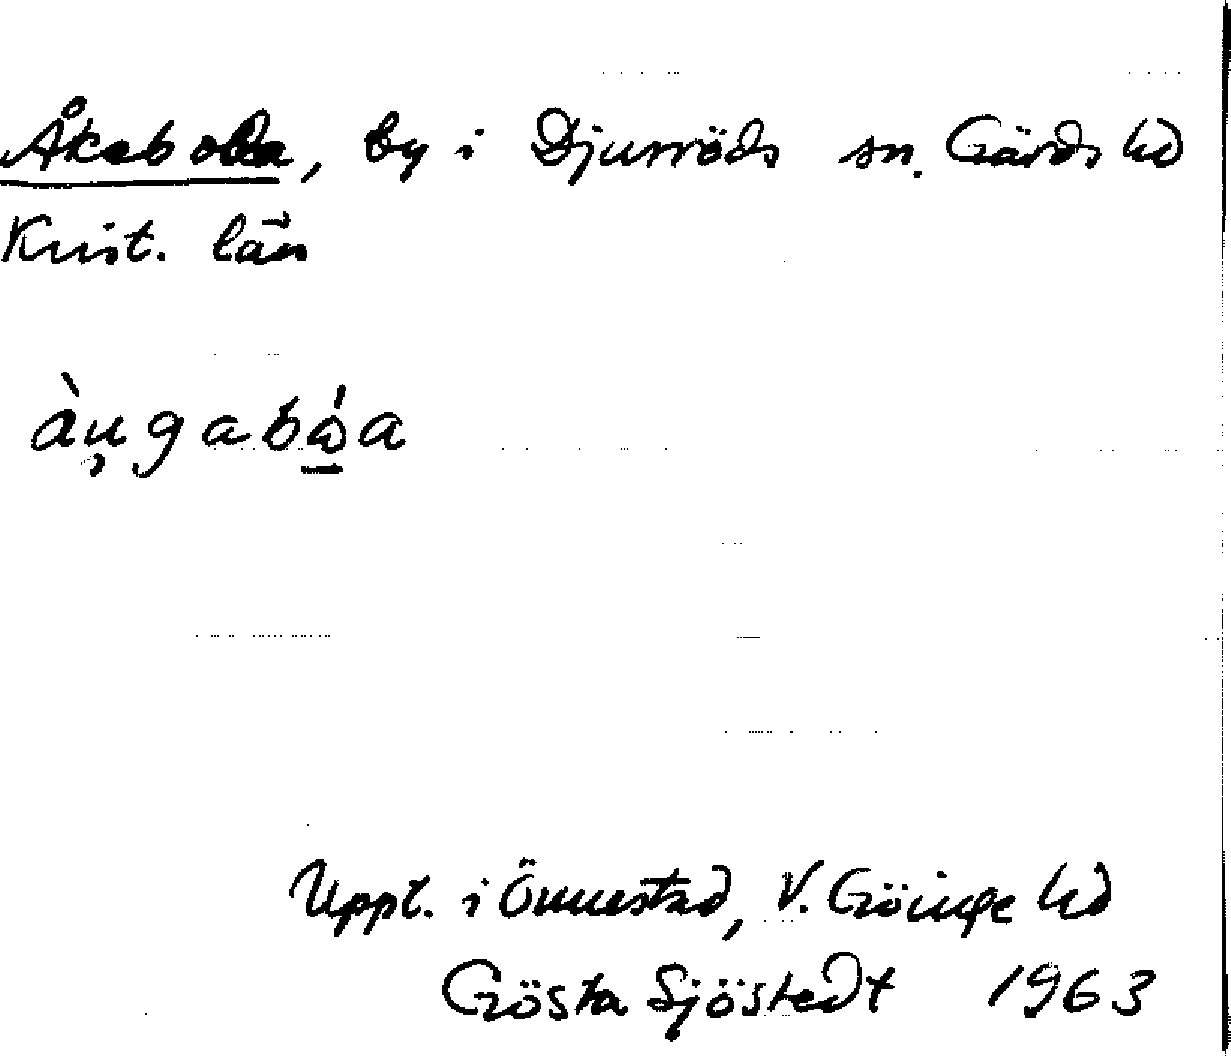 Åkeboda, by i Djurröds sn. Gärds hd
Krist. län
àu̡gabó̱a
Uppt. i Önnestad, V. Göinge hd
Gösta Sjöstedt 1963